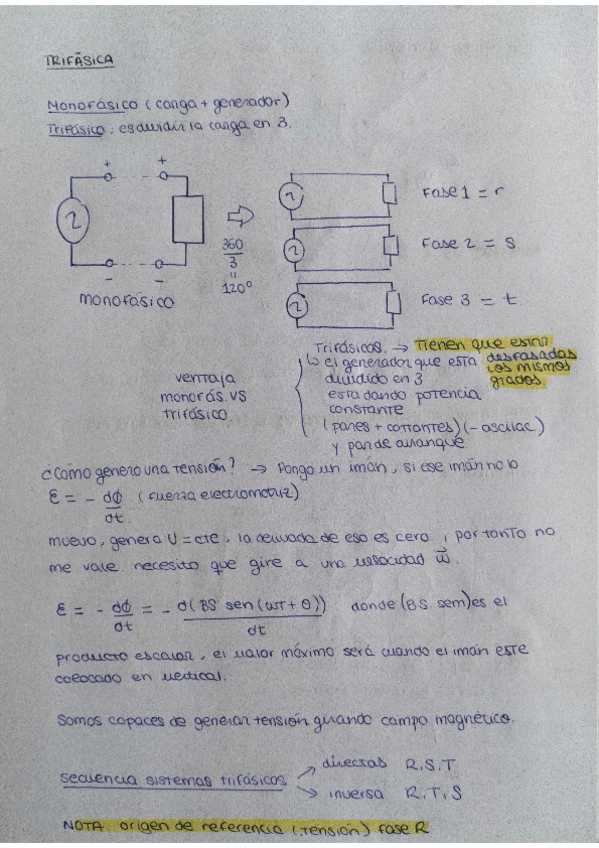 TRIFÁSICA
Monofásico (carga + generador)
Trifásico: es dividir la carga en 3.
+ +
Fase 1 = r
360
3
"
120º
Fase 2 = s
- -
monofásico
Fase 3 = t.
Trifásicos. → Tienen que estar
desfasados
los mismos
grados.
↳ el generador que esta
dividido en 3
esta dando potencia
constante
(pares + constantes) (- oscilac)
y par de arranque
ventaja
monofás. vs
trifásico
¿Cómo genero una tensión? → Pongo un imán, si ese imán no lo
ε = - dϕ (fuerza electromotriz)
dt
muevo, genera U = cte, la derivada de eso es cero, por tanto no
me vale. necesito que gire a una velocidad w⃗.
ε = - dϕ = - d(BS sen (wT + θ)) donde (BS sem) es el
dt dt
producto escalar, el valor máximo será cuando el imán este
colocado en vertical.
Somos capaces de generar tensión girando campo magnético.
secuencia sistemas trifásicos
directas R.S.T
inversa R.T.S
NOTA: origen de referencia (tensión) fase R